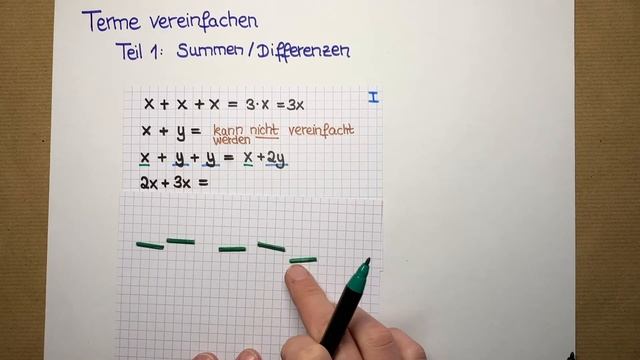 Terme vereinfachen
Teil 1: Summen/Differenzen
I
x + x + x = 3·x = 3x
x + y = kann nicht vereinfacht
werden
x + y + y = x + 2y
2x + 3x =